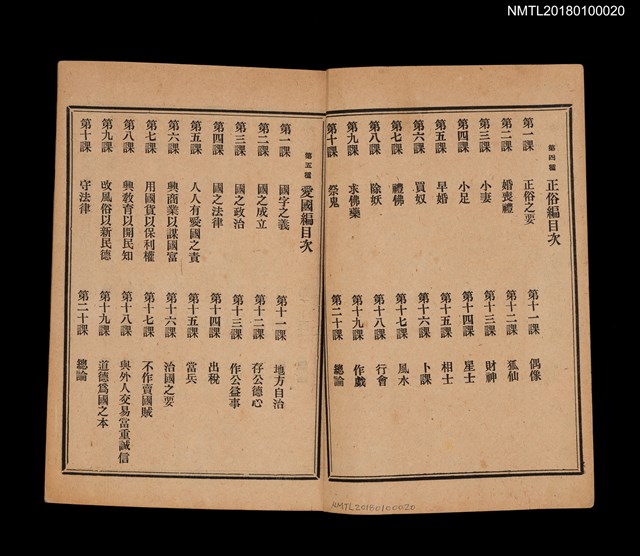 NMTL20180100020
第四種 正俗編目次
第一課 正俗之要
第二課 婚喪禮
第三課 小妻
第四課 小足
第五課 早婚
第六課 買奴
第七課 禮佛
第八課 除妖
第九課 求佛藥
第十課 祭鬼
第十一課 偶像
第十二課 狐仙
第十三課 財神
第十四課 星士
第十五課 相士
第十六課 卜課
第十七課 風水
第十八課 行會
第十九課 作戲
第二十課 總論
第五種 愛國編目次
第一課 國字之義
第二課 國之成立
第三課 國之政治
第四課 國之法律
第五課 人人有愛國之責
第六課 興商業以謀國富
第七課 用國貨以保利權
第八課 興教育以開民知
第九課 改風俗以新民德
第十課 守法律
第十一課 地方自治
第十二課 存公德心
第十三課 作公益事
第十四課 出稅
第十五課 當兵
第十六課 治國之要
第十七課 不作賣國賊
第十八課 與外人交易當重誠信
第十九課 道德爲國之本
第二十課 總論
NMTL20180100020